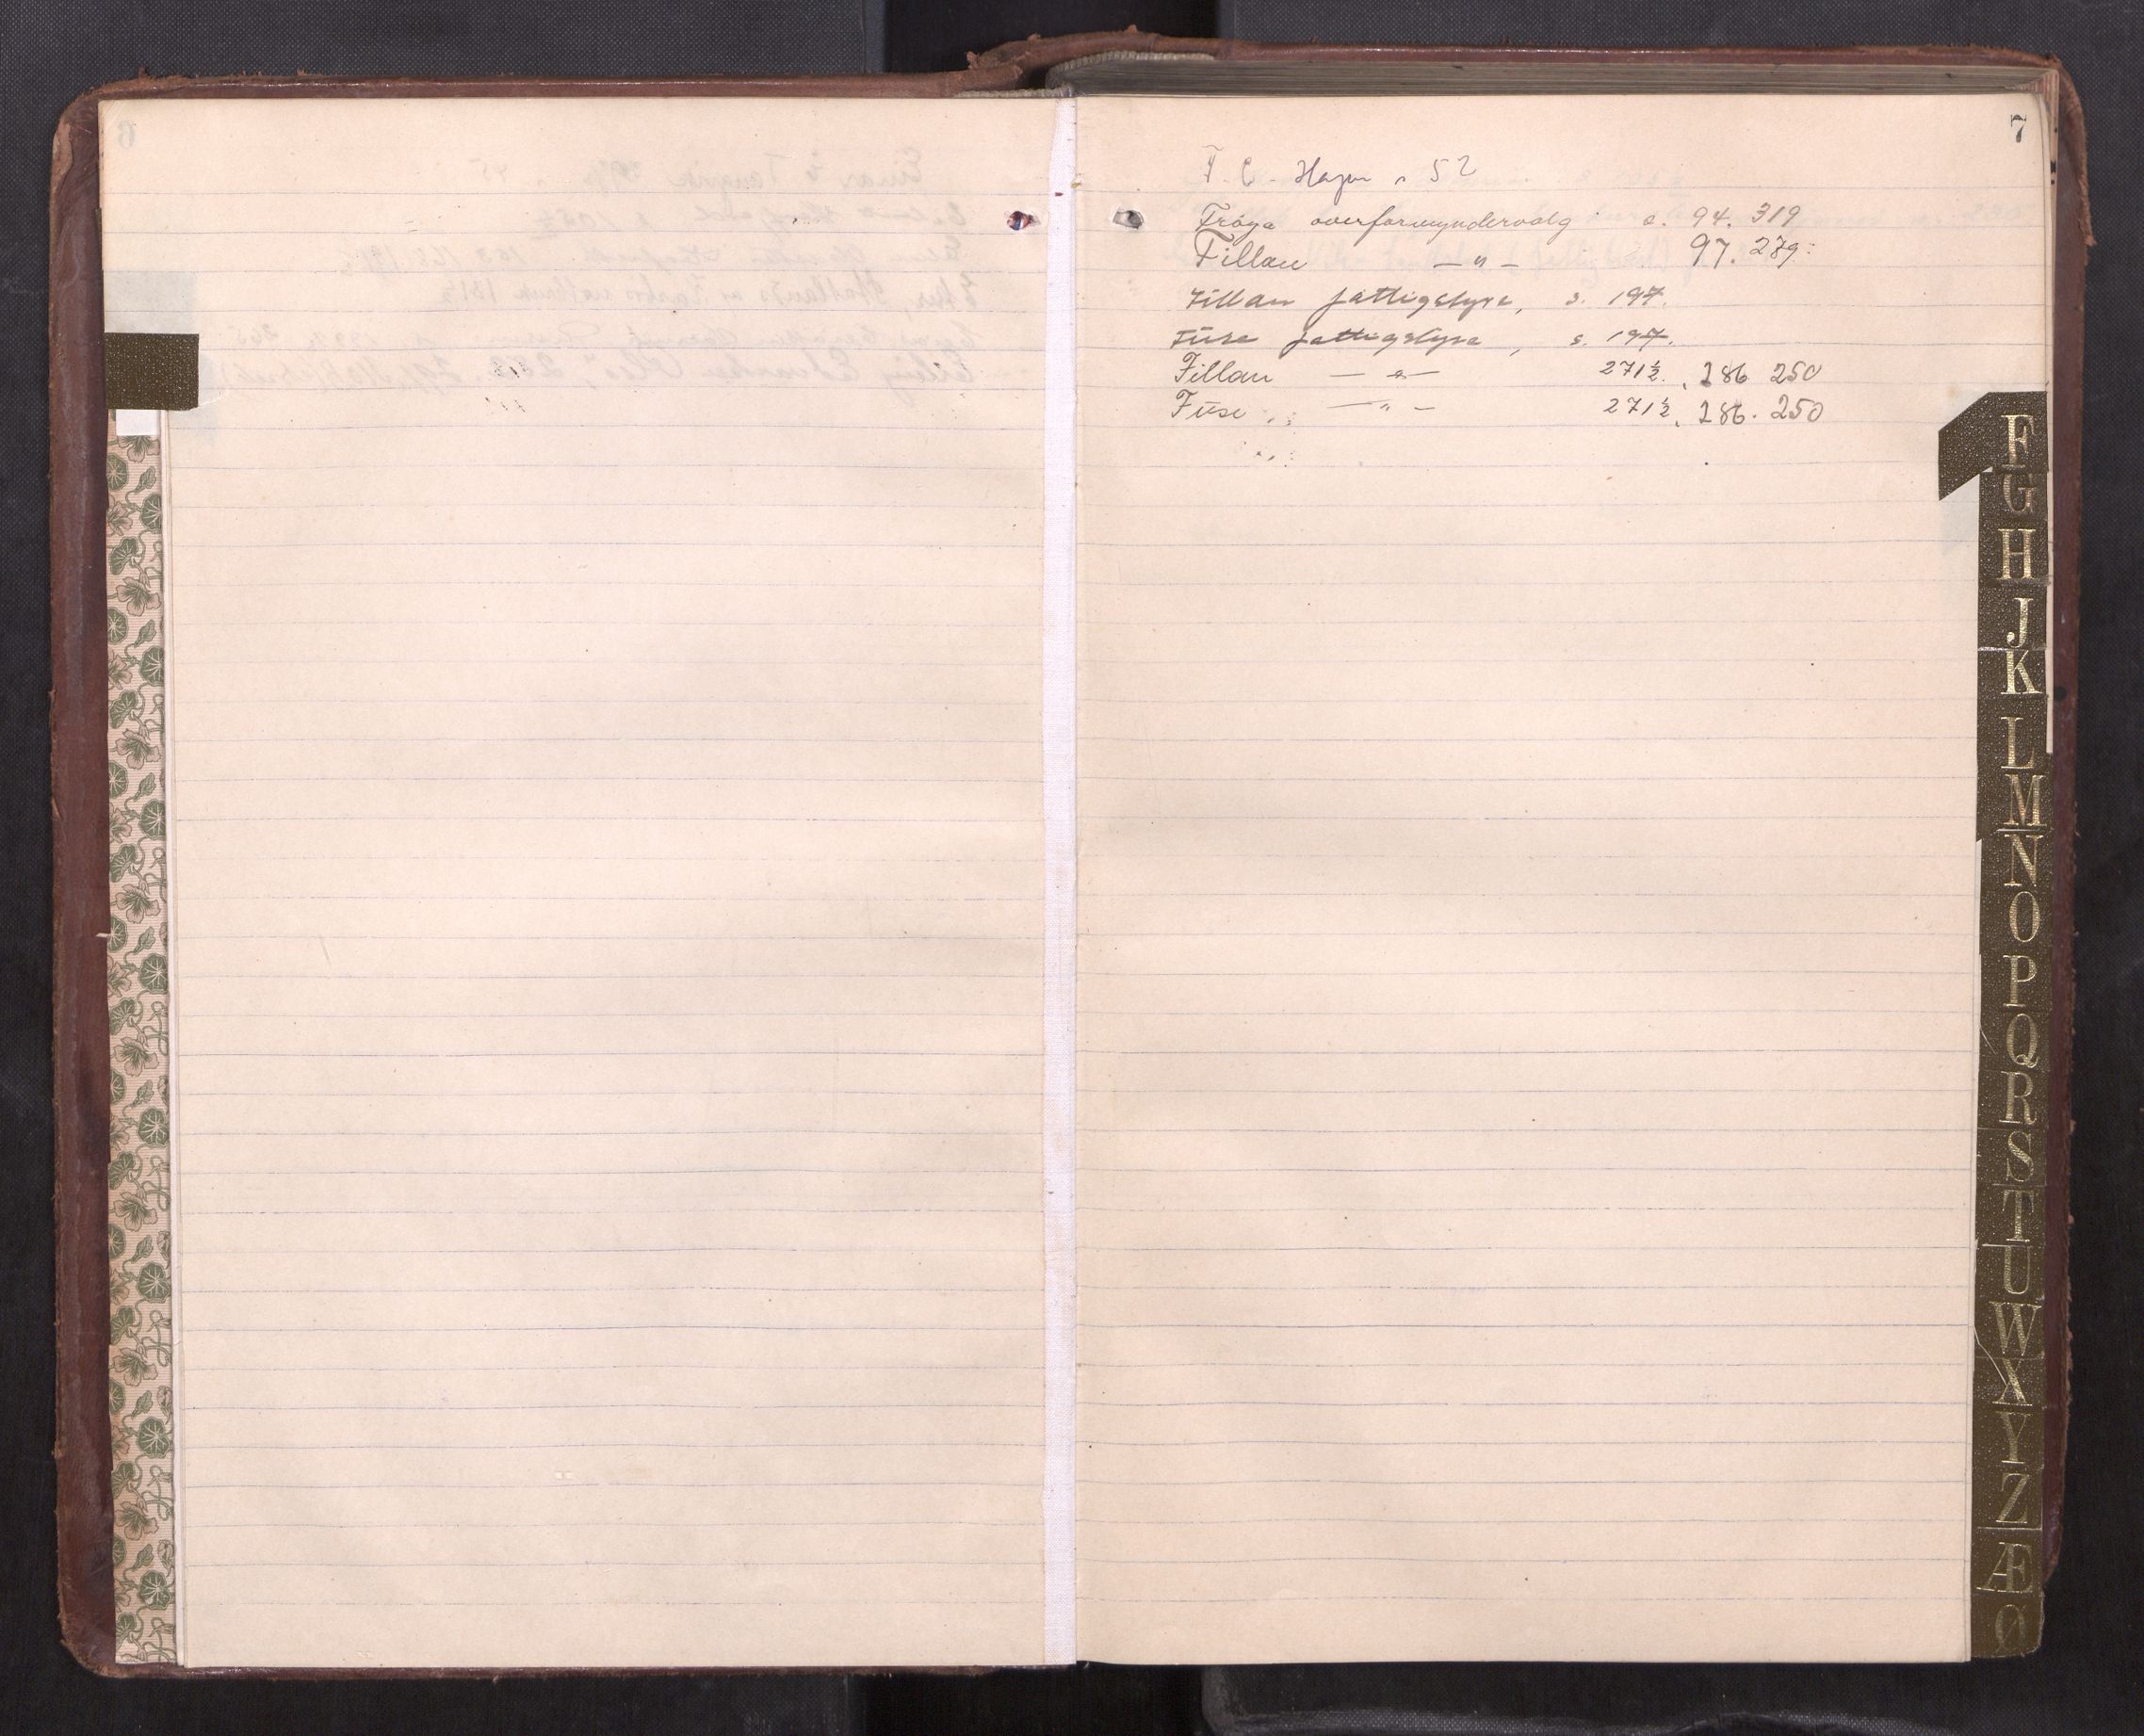 7
F. C. Hagen s 52
Frøya overformyndervalg s. 94. 319
Fillan — " — 97. 279.
Fillan fattigstyre, s. 197.
Fuse fattigstyre, s. 197.
Fillan — " — 271½, 286 250
Fuse — " — 271½, 286. 250
F
G
H
J
K
L
M
N
O
P
Q
R
S
T
U
W
X
Y
Z
Æ
Ø